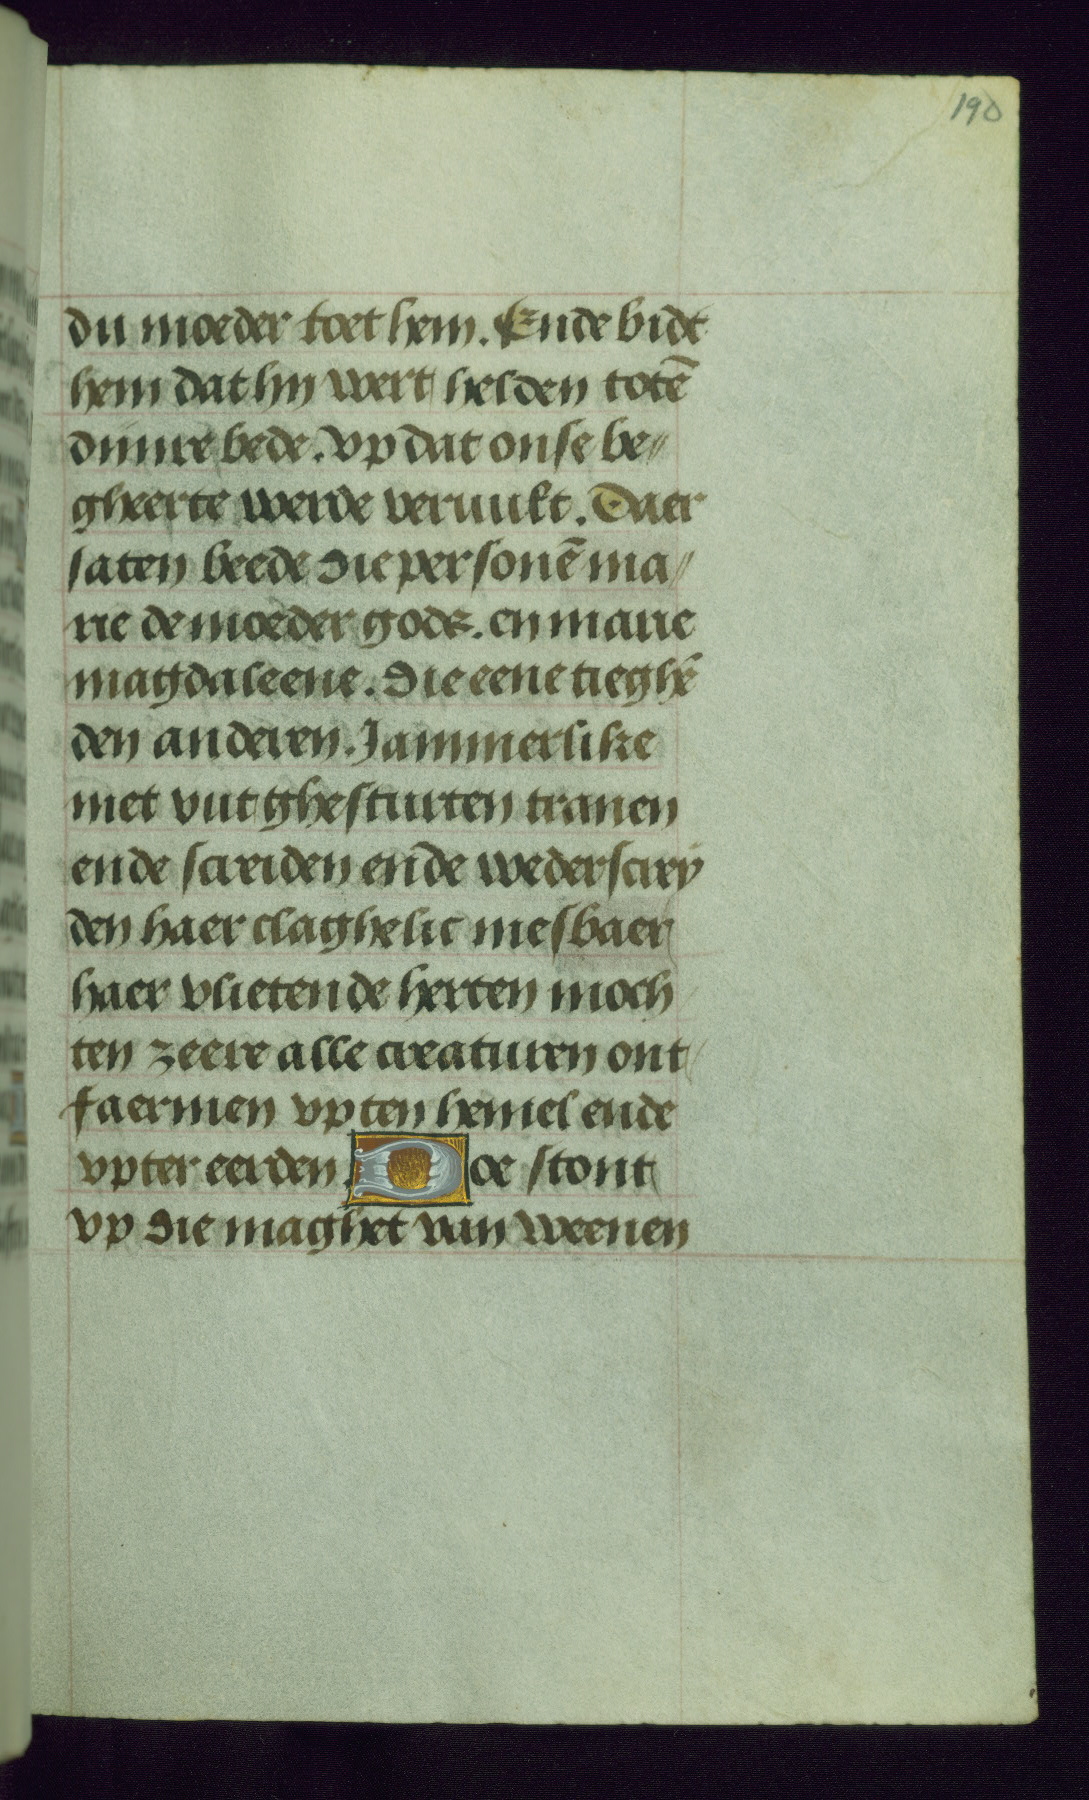 190
du moeder toet hem. Ende bidt
hem dat hy wert helden totē
dinire bede. vp dat onse be〃
gheerte werde veruult. Daer
saten beede die personē ma〃
rie de moeder gods. en marie
magdaleene. Die eene ieghē
den anderen. Jammerlike
met vut ghesturten tranen
ende screiden ende wederscrey
den haer claghelic mesbaer
haer vlietende herten moch
ten zeere alle creaturen ont
faermen vp ten hemel ende
vpter eerden. Doe stont
vp die maghet van weenen